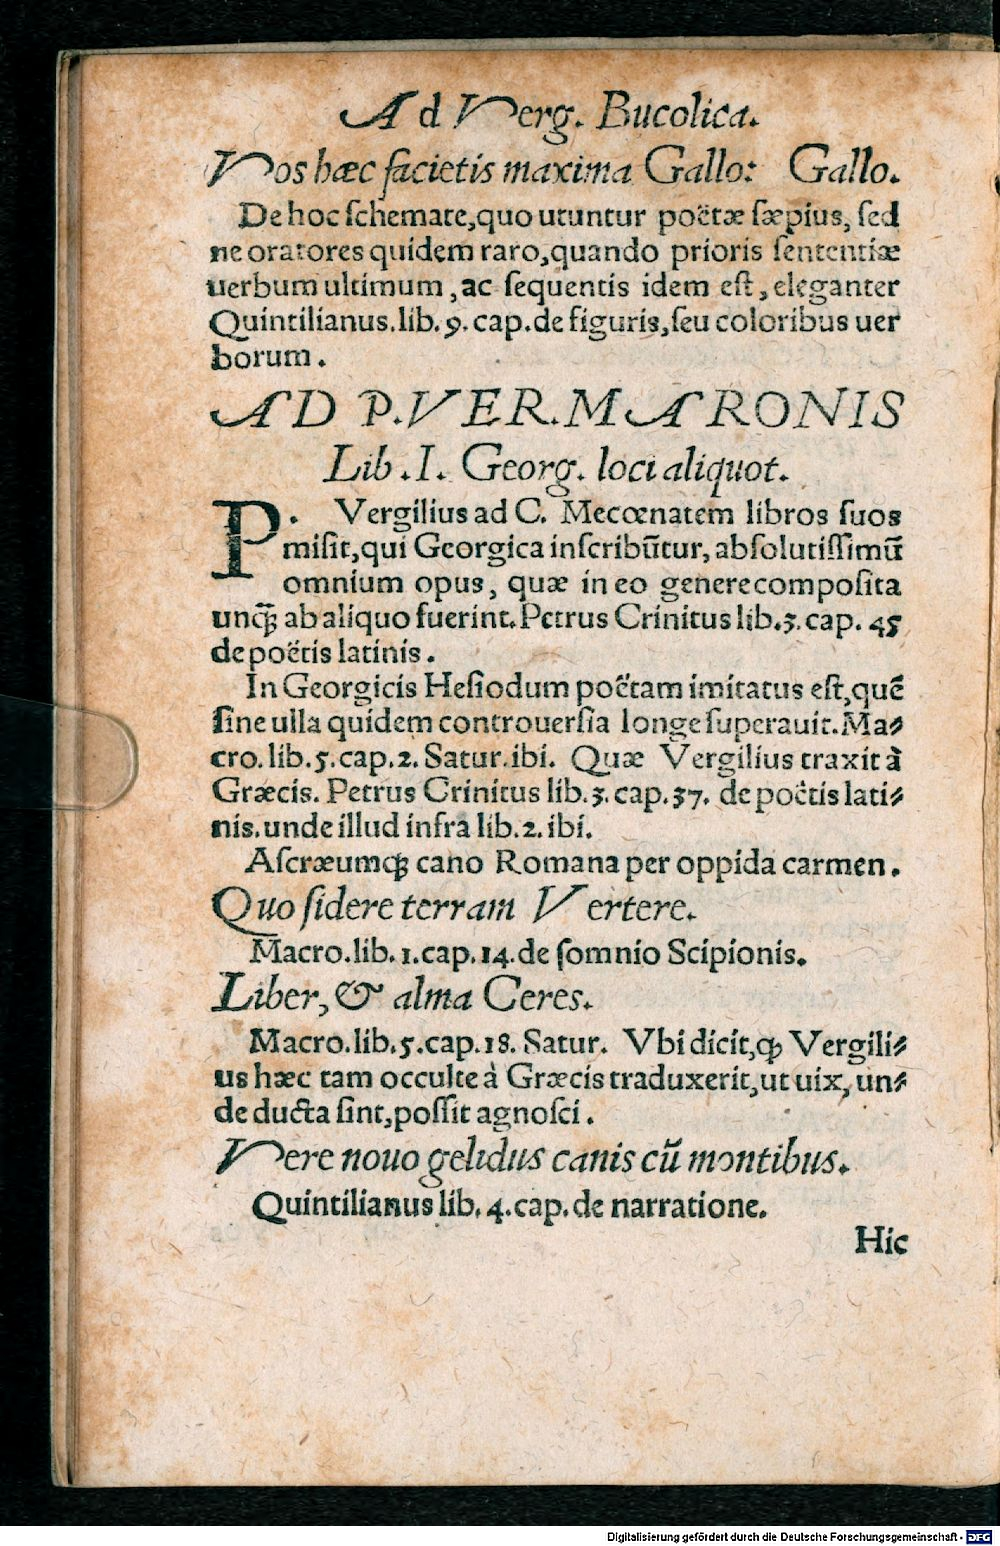 Ad Verg. Bucolica.
Vos hæc facietis maxima Gallo: Gallo.
De hoc ſchemate,quo utuntur poëtæ ſæpius, ſed
ne oratores quidem raro,quando prioris ſententiæ
uerbum ultimum, ac ſequentis idem eſt, eleganter
Quintilianus.lib.9.cap.de figuris,ſeu coloribus uer
borum.
AD P.VER.MARONIS
Lib.I. Georg. loci aliquot.
P. Vergilius ad C. Mecœnatem libros ſuos
miſit,qui Georgica inſcribūtur, abſolutiſſimū
omnium opus, quæ in eo genere compoſita
unq̄; ab aliquo fuerint.Petrus Crinitus lib.3.cap. 45
de poëtis latinis.
In Georgicis Heſiodum poëtam imitatus eſt,quē
ſine ulla quidem controuerſia longe ſuperauit.Ma⸗
cro.lib.5.cap.2. Satur.ibi. Quæ Vergilius traxit à
Græcis. Petrus Crinitus lib.3.cap.37. de poëtis lati⸗
nis.unde illud infra lib.2.ibi.
Aſcræumq; cano Romana per oppida carmen.
Quo ſidere terram Vertere.
Macro.lib.1.cap.14.de ſomnio Scipionis.
Liber, & alma Ceres.
Macro.lib.5.cap.18. Satur. Vbi dicit,ꝙ Vergili⸗
us hæc tam occulte à Græcis traduxerit,ut uix, un⸗
de ducta ſint,poſſit agnoſci.
Vere nouo gelidus canis cū montibus.
Quintilianus lib.4.cap.de narratione.
Hic
Digitalisierung gefördert durch die Deutsche Forschungsgemeinschaft - DFG